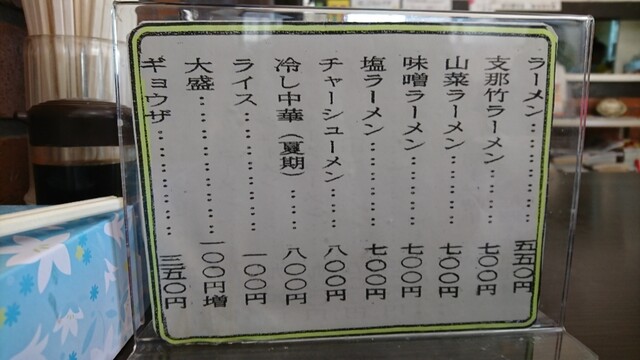 ラーメン‥‥‥‥‥五五〇円
支那竹ラーメン‥‥‥‥七〇〇円
山菜ラーメン‥‥‥‥七〇〇円
味噌ラーメン‥‥‥‥七〇〇円
塩ラーメン‥‥‥‥‥七〇〇円
チャーシューメン‥‥‥八〇〇円
冷し中華（夏期）‥‥‥八〇〇円
ライス‥‥‥‥‥‥一〇〇円
大盛‥‥‥‥‥‥一〇〇円増
ギョウザ‥‥‥‥‥三五〇円